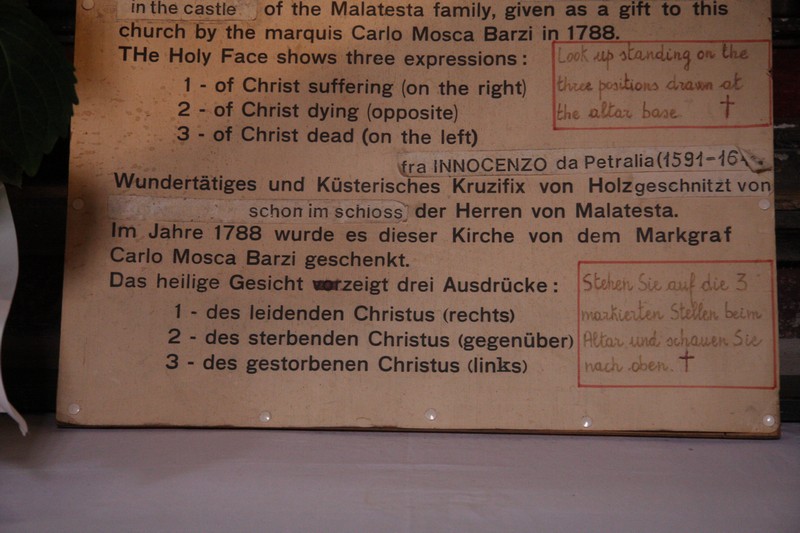 in the castle of the Malatesta family, given as a gift to this
church by the marquis Carlo Mosca Barzi in 1788.
THe Holy Face shows three expressions:
1 - of Christ suffering (on the right)
2 - of Christ dying (opposite)
3 - of Christ dead (on the left)
Look up standing on the
three positions drawn at
the altar base.
fra INNOCENZO da Petralia (1591-16
Wundertätiges und Küsterisches Kruzifix von Holz geschnitzt von
schon im schloss der Herren von Malatesta.
Im Jahre 1788 wurde es dieser Kirche von dem Markgraf
Carlo Mosca Barzi geschenkt.
Das heilige Gesicht zeigt drei Ausdrücke:
1 - des leidenden Christus (rechts)
2 - des sterbenden Christus (gegenüber)
3 - des gestorbenen Christus (links)
Stehen Sie auf die 3
markierten Stellen beim
Altar und schauen Sie
nach oben.